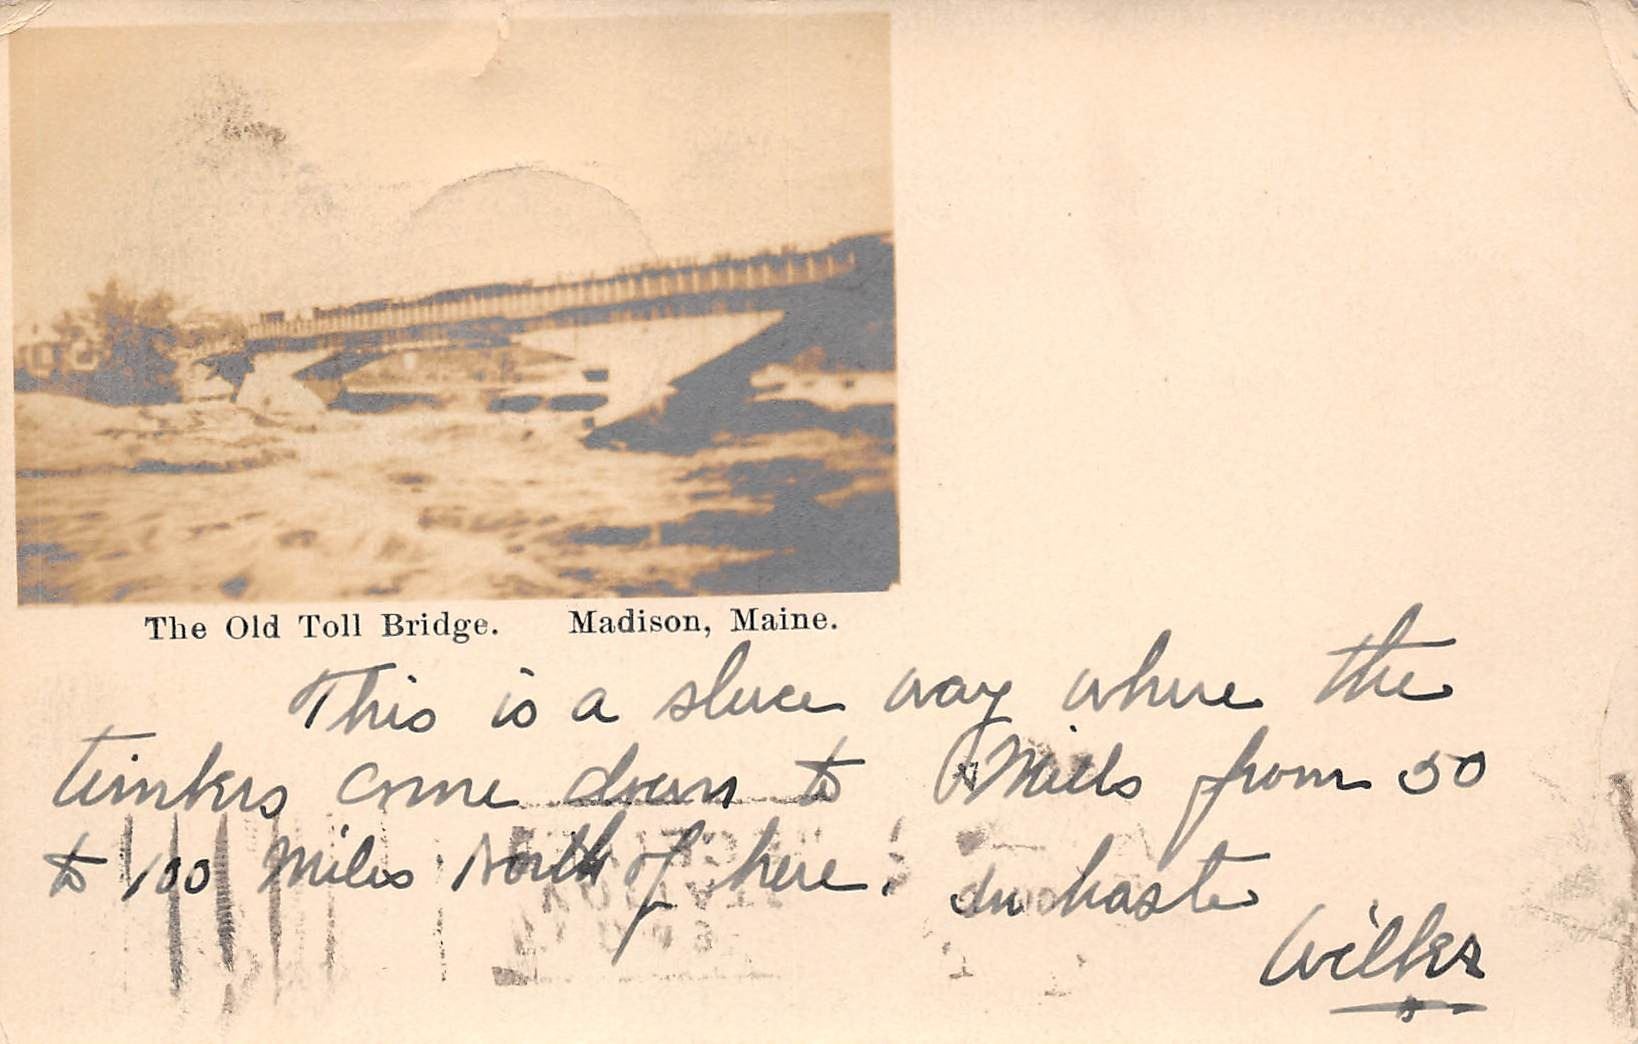 The Old Toll Bridge. Madison, Maine.
This is a sluce way where the
timbers come down to Mills from 50
to 100 Miles North of here. in haste
Wilkes